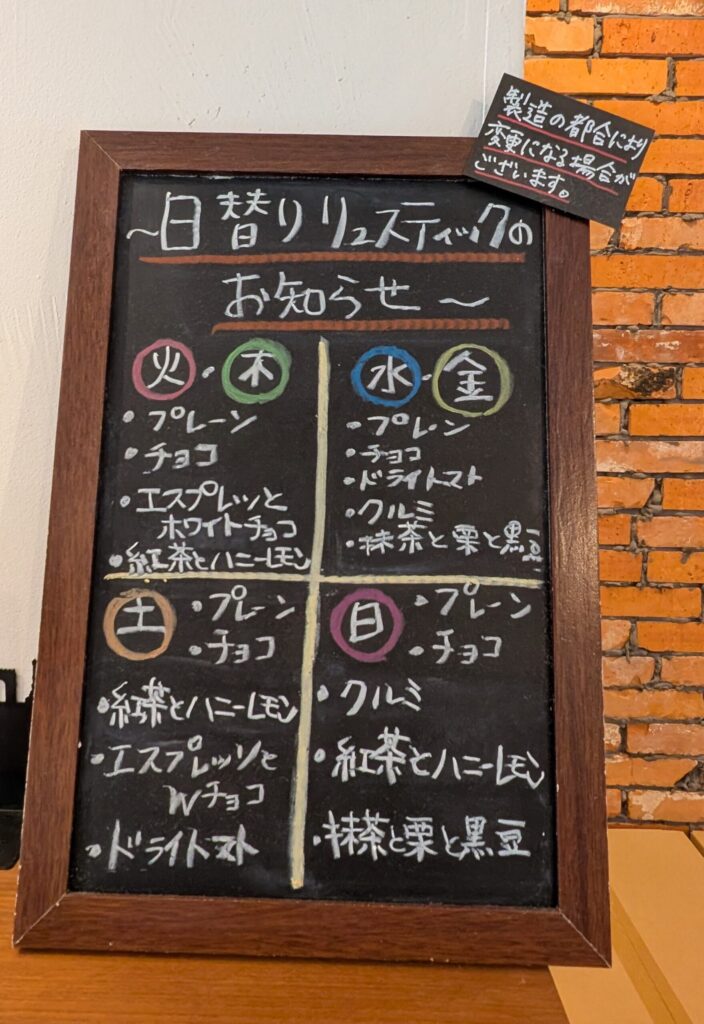 製造の都合により
変更になる場合が
ございます。
～日替りリュスティックの
お知らせ～
火・木
・プレーン
・チョコ
・エスプレッソと
ホワイトチョコ
・紅茶とハニーレモン
水・金
・プレーン
・チョコ
・ドライトマト
・クルミ
・抹茶と栗と黒豆
土
・プレーン
・チョコ
・紅茶とハニーレモン
・エスプレッソと
Wチョコ
・ドライトマト
日
・プレーン
・チョコ
・クルミ
・紅茶とハニーレモン
・抹茶と栗と黒豆